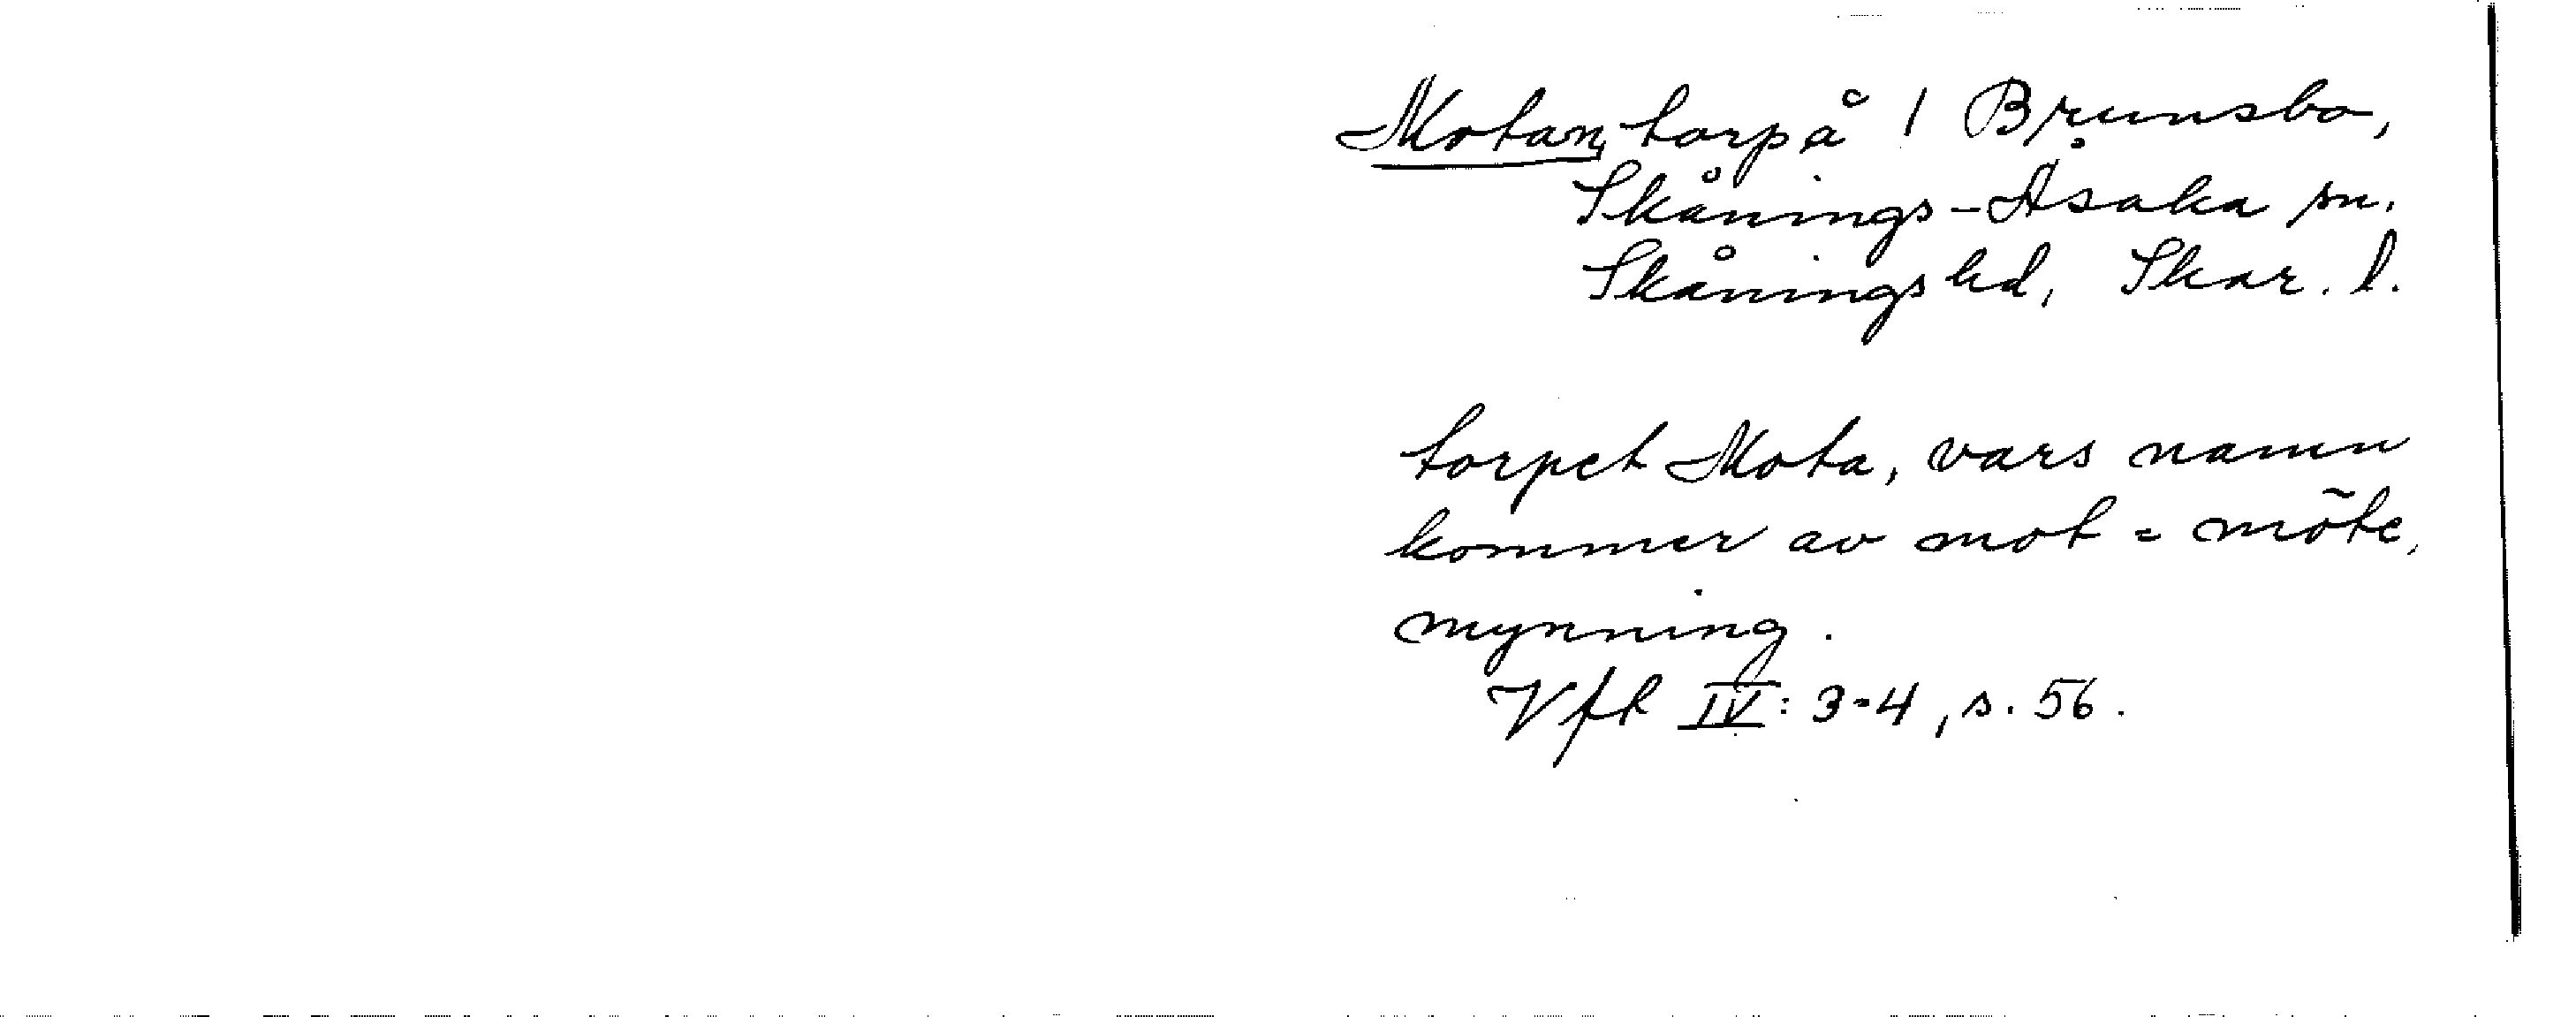 Motan, torp å / Brunsbo,
Skånings-Åsaka sn.
Skånings hd, Skar. l.
torpet Mota, vars namn
kommer av mot = möte,
mynning.
Vfh IV: 3-4, s. 56.